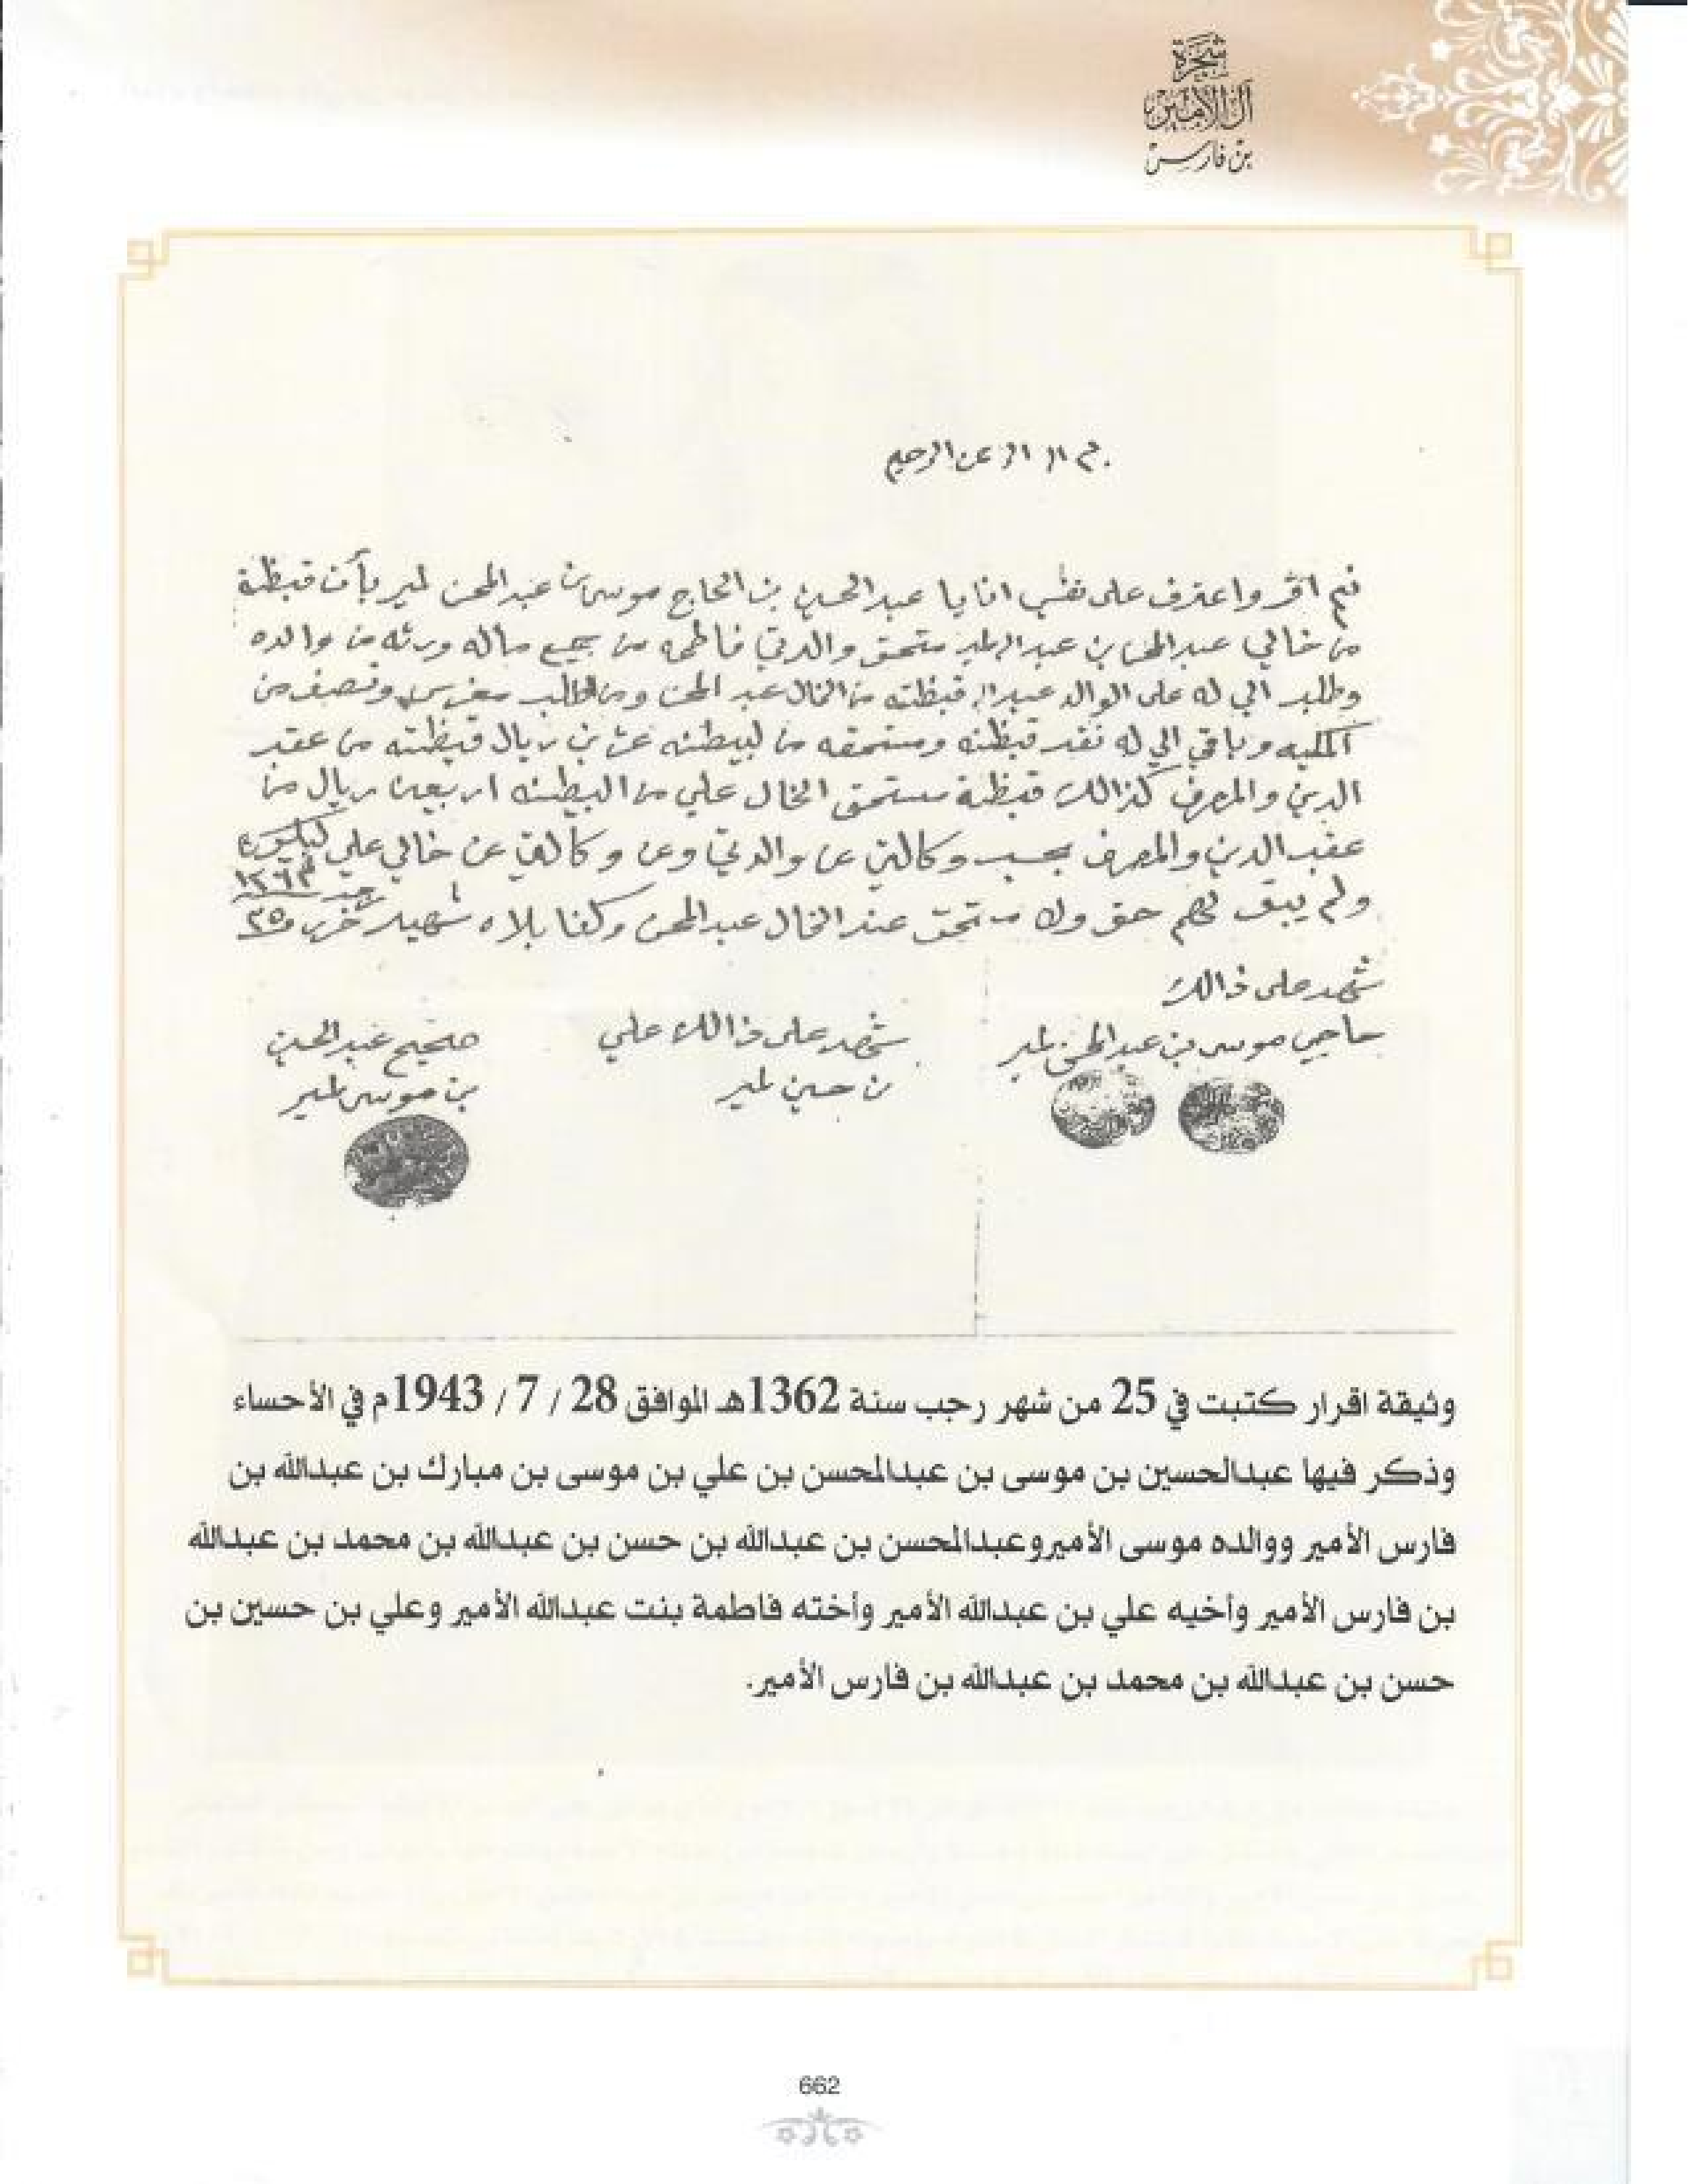 شجرة
آل الأمير
بن فارس
نعم اقر واعترف على نفسي انايا عبدالحسين بن الحاج موسى بن عبدالمحسن لمير بأن قبظة
من خالي عبدالمحسن بن عبدالله لمير مستحق والدتي فاطمه من جميع ماله ورثه من والده
وطلبه الي له على الوالد عبدالله قبظته من الخال عبد المحسن ومن الطلب مغرس ونصيف من
المليه وباقي الي له نقد قبظته ومستحقه من لبيطنه عشرين ريال قبظته من عقب
الدين والمصرف كذالك قبظة مستحق الخال علي من البطنه اربعين ريال من
عقب الدين والمصرف بحسب وكالتي عن والدتي وعن وكالتي عن خالي علي
ولم يبق لهم حق ولا مستحق عند الخال عبدالمحسن وكفا بلاه شهيد ٢٥
١٣٦٢
شهد على ذالك
حاجي موسى بن عبدالمحسن لمير
شهد على ذالك علي
بن حسين لمير
صحيح عبدالحسين
بن موسى لمير
وثيقة اقرار كتبت في 25 من شهر رجب سنة 1362هـ الموافق 28 / 7 / 1943م في الأحساء
وذكر فيها عبدالحسين بن موسى بن عبدالمحسن بن علي بن موسى بن مبارك بن عبدالله بن
فارس الأمير ووالده موسى الأميروعبدالمحسن بن عبدالله بن حسن بن عبدالله بن محمد بن عبدالله
بن فارس الأمير وأخيه علي بن عبدالله الأمير وأخته فاطمة بنت عبدالله الأمير وعلي بن حسين بن
حسن بن عبدالله بن محمد بن عبدالله بن فارس الأمير.
662